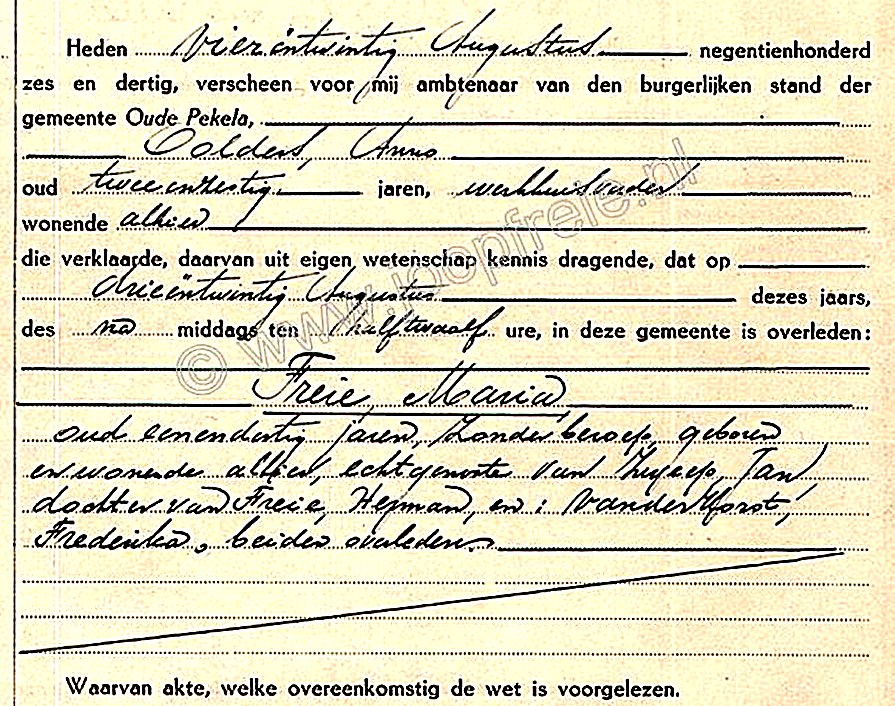 Heden Vierëntwintig Augustus negentienhonderd
zes en dertig, verscheen voor mij ambtenaar van den burgerlijken stand der
gemeente Oude Pekela,
Anno
oud twee enzestig jaren, werkhuisvader
wonende alhier
die verklaarde, daarvan uit eigen wetenschap kennis dragende, dat op
drieëntwintig Augustus dezes jaars,
des na middags ten half twaalf ure, in deze gemeente is overleden:
Freie, Maria,
oud eenendertig jaren, zonder beroep, geboren
en wonende alhier, echtgenoote van Jan,
dochter van Freie, Herman, en: van der Horst,
Frederika, beiden overleden.
Waarvan akte, welke overeenkomstig de wet is voorgelezen.
© www.joopfreie.nl